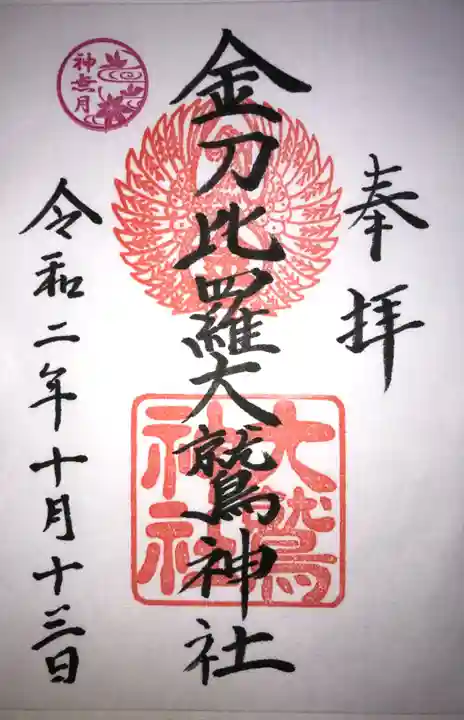 奉拝
金刀比羅大鷲神社
大鷲
神社
神無月
令和二年十月十三日